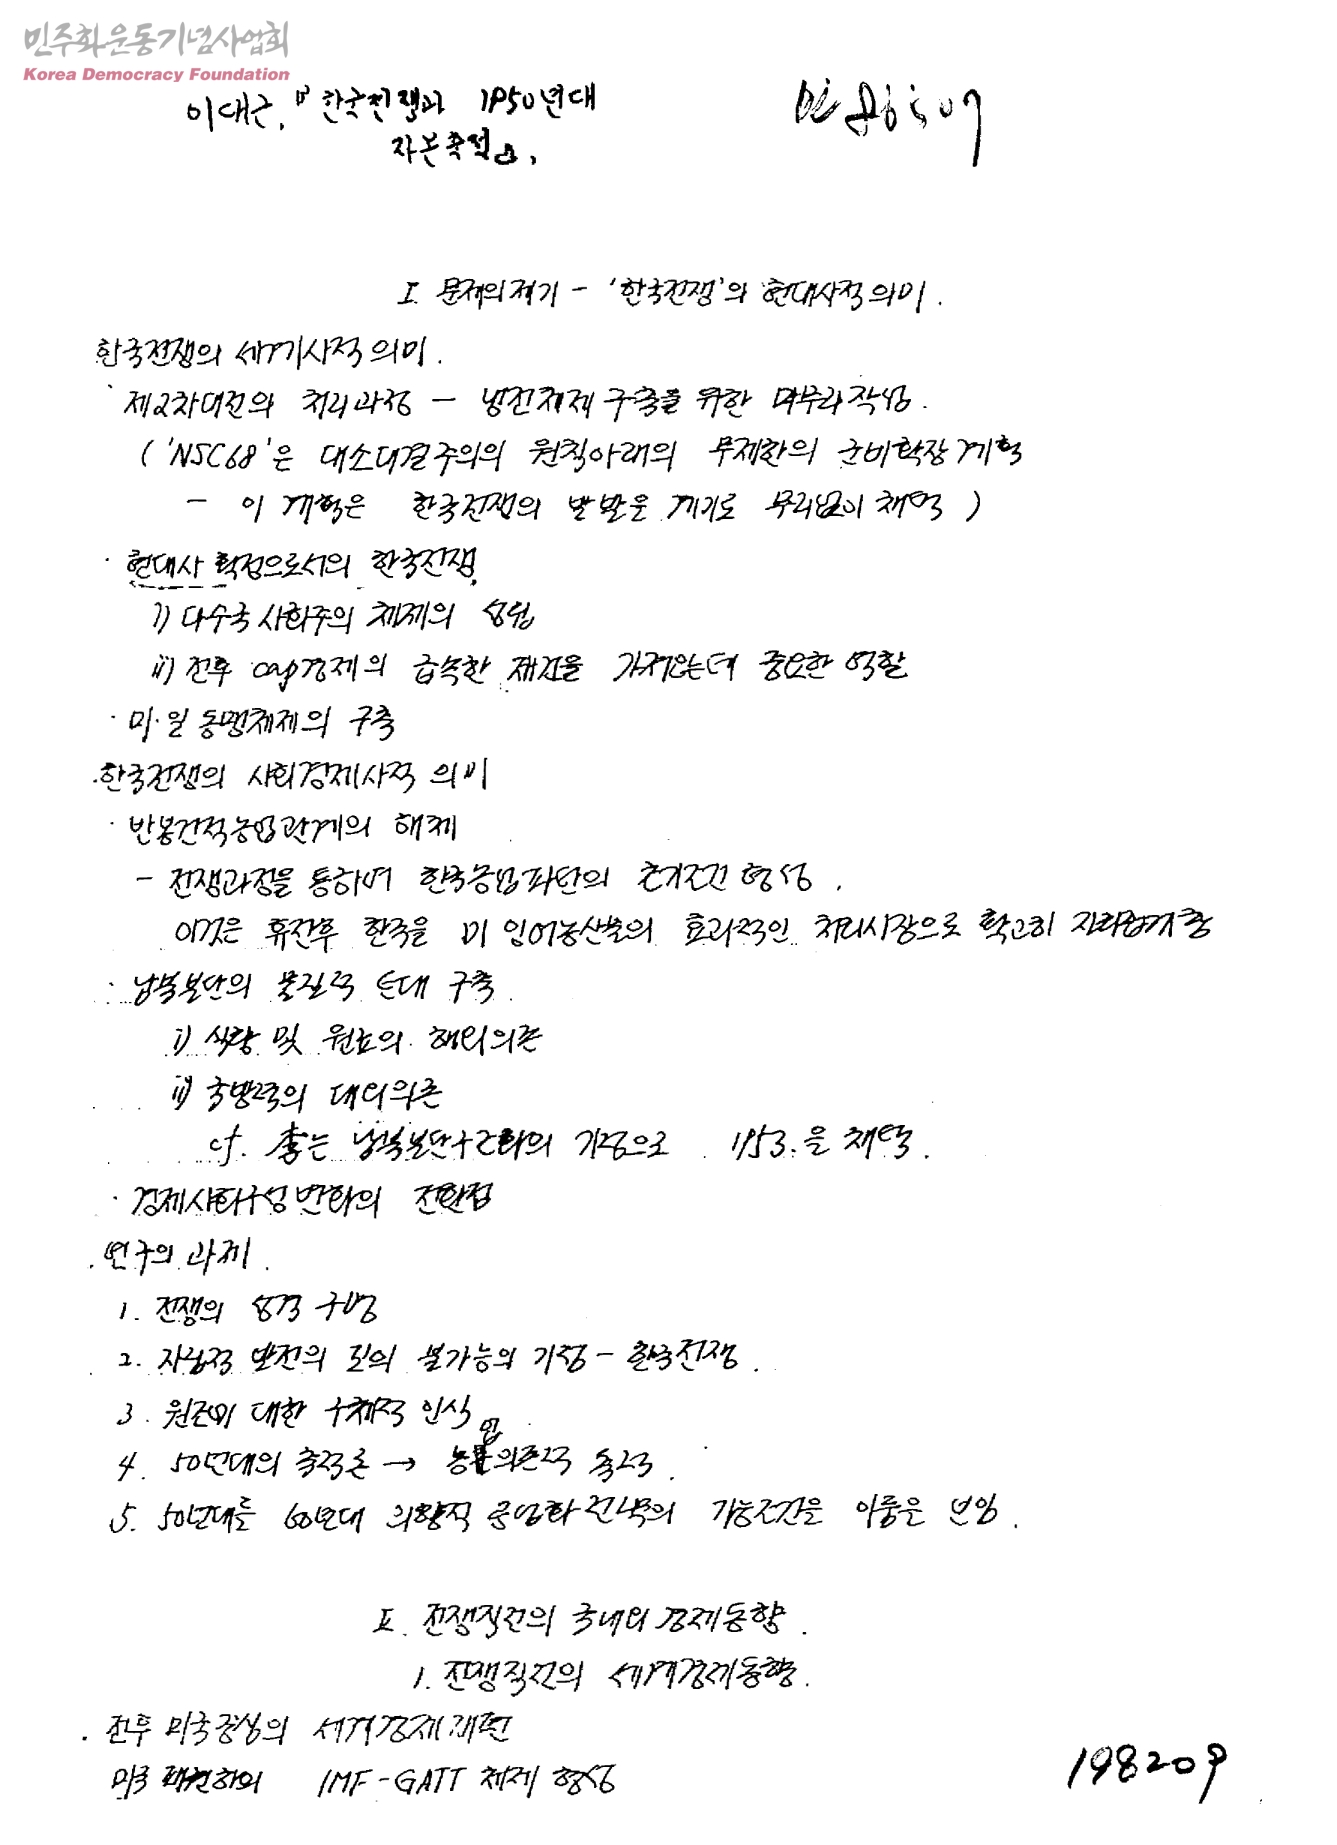 민주화운동기념사업회
Korea Democracy Foundation
이대근, 『한국전쟁과 1950년대
자본축적』,
I. 문제의 제기 - '한국전쟁'의 현대사적 의미.
한국전쟁의 세계사적 의미.
· 제2차대전의 처리과정 - 냉전체제 구축을 위한 마무리 작업.
('NSC68'은 대소대결주의의 원칙아래의 무제한의 군비확장계획
- 이 계획은 한국전쟁의 발발을 계기로 무리없이 채택)
· 현대사 획점으로서의 한국전쟁
i) 다수국 사회주의 체제의 성립
ii) 전후 cap경제의 급속한 재건을 가져오는데 중요한 역할
· 미·일 동맹체제의 구축
· 한국전쟁의 사회경제사적 의미
· 반봉건적농업관계의 해체
- 전쟁과정을 통하여 한국농업파탄의 초기조건 형성.
이것은 휴전후 한국을 미 잉여농산물의 효과적인 처리시장으로 확고히
· 남북분단의 물질적 토대 구축
i) 식량 및 원료의 해외의존
ii) 국방력의 대외의존
cf. 李는 남북분단구조화의 기점으로 1953.을 채택.
· 경제사회구성 변화의 전환점
· 연구의 과제.
1. 전쟁의 성격 구명
2. 자립적 발전의 길의 불가능의 기점 - 한국전쟁.
3. 원조에 대한 구체적 인식
4. 50년대의 축적론 → 농업의존적 축적.
5. 50년대를 60년대 외향적 공업화전략의 가능조건을 이룸을 보임.
II. 전쟁직전의 국내외 경제동향.
1. 전쟁직전의 세계경제동향.
· 전후 미국중심의 세계경제재편
미국 패권하의 IMF-GATT 체제 형성
198209